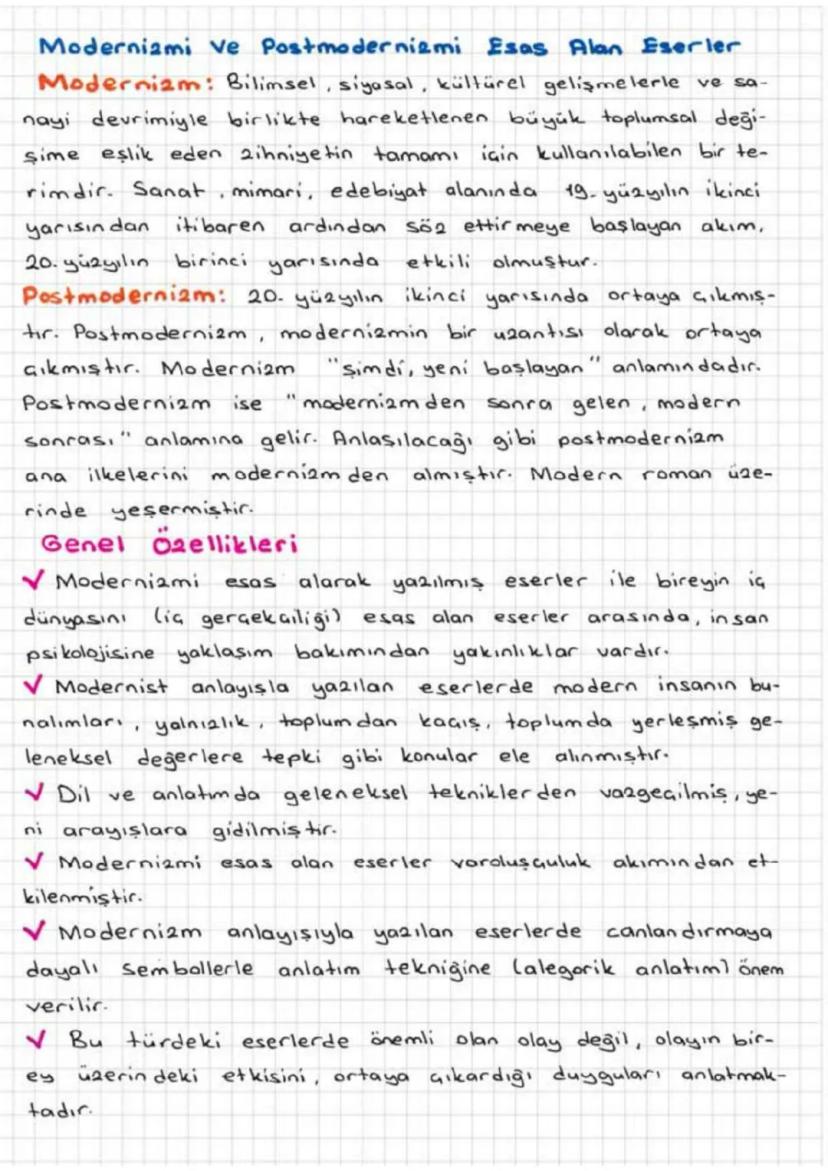 Modernizmi ve Postmodernizmi Esas Alan Eserler
Modernizm: Bilimsel, siyasal, kültürel gelişmelerle ve sa-
nayi devrimiyle birlikte hareketlenen büyük toplumsal deği-
şime eşlik eden zihniyetin tamamı için kullanılabilen bir te-
rimdir. Sanat, mimari, edebiyat alanında 19. yüzyılın ikinci
yarısından itibaren ardından söz ettirmeye başlayan akım,
20. yüzyılın birinci yarısında etkili olmuştur.
Postmodernizm: 20. yüzyılın ikinci yarısında ortaya çıkmış-
tır. Postmodernizm, modernizmin bir uzantısı olarak ortaya
çıkmıştır. Modernizm "şimdi, yeni başlayan" anlamındadır.
Postmodernizm ise "modernizmden sonra gelen, modern
sonrası" anlamına gelir. Anlaşılacağı gibi postmodernizm
ana ilkelerini modernizmden almıştır. Modern roman üze-
rinde yeşermiştir.
Genel Özellikleri
✓ Modernizmi esas alarak yazılmış eserler ile bireyin iç
dünyasını (iç gerçekçiliği) esas alan eserler arasında, insan
psikolojisine yaklaşım bakımından yakınlıklar vardır.
✓ Modernist anlayışla yazılan eserlerde modern insanın bu-
nalımları, yalnızlık, toplumdan kaçış, toplumda yerleşmiş ge-
leneksel değerlere tepki gibi konular ele alınmıştır.
✓ Dil ve anlatımda geleneksel tekniklerden vazgeçilmiş, ye-
ni arayışlara gidilmiştir.
✓ Modernizmi esas alan eserler varoluşçuluk akımından et-
kilenmiştir.
✓ Modernizm anlayışıyla yazılan eserlerde canlandırmaya
dayalı sembollerle anlatım tekniğine (alegorik anlatım) önem
verilir.
✓ Bu türdeki eserlerde önemli olan olay değil, olayın bir-
ey üzerindeki etkisini, ortaya çıkardığı duyguları anlatmak-
tadır.